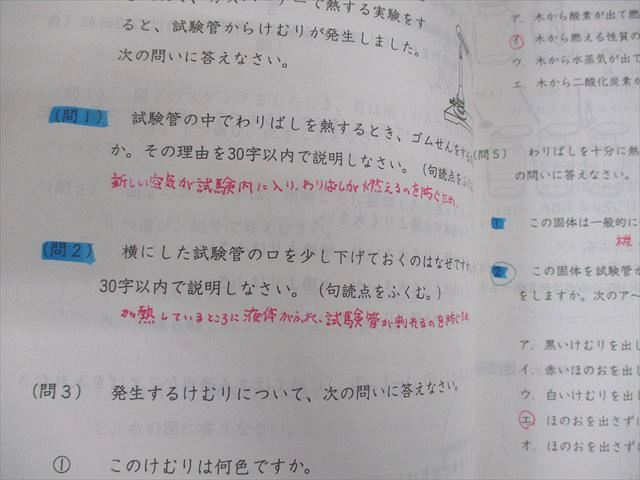 で熱する実験をす
ると、試験管からけむりが発生しました。
次の問いに答えなさい。
(問1) 試験管の中でわりばしを熱するとき、ゴムせんをす
か。その理由を30字以内で説明しなさい。(句読点をふく
新しい空気が試験内に入り、わりばしが燃えるのを防ぐため。
(問2) 横にした試験管の口を少し下げておくのはなぜですか
30字以内で説明しなさい。(句読点をふくむ。)
加熱しているところに液体がふれ、試験管が割れるのを防ぐため
(問3) 発生するけむりについて、次の問いに答えなさい。
① このけむりは何色ですか。
ア. 木から酸素が出て燃
イ. 木から燃える性質の
ウ. 木から水蒸気が出て
エ. 木から二酸化炭素が
(問5) わりばしを十分に熱
の問いに答えなさい。
① この固体は一般的に
② この固体を試験管か
をしますか。次のアへ
ア. 黒いけむりを出し
イ. 赤いほのおを出し
ウ. 白いけむりを出し
エ. ほのおを出さずに
オ. ほのおを出さずに